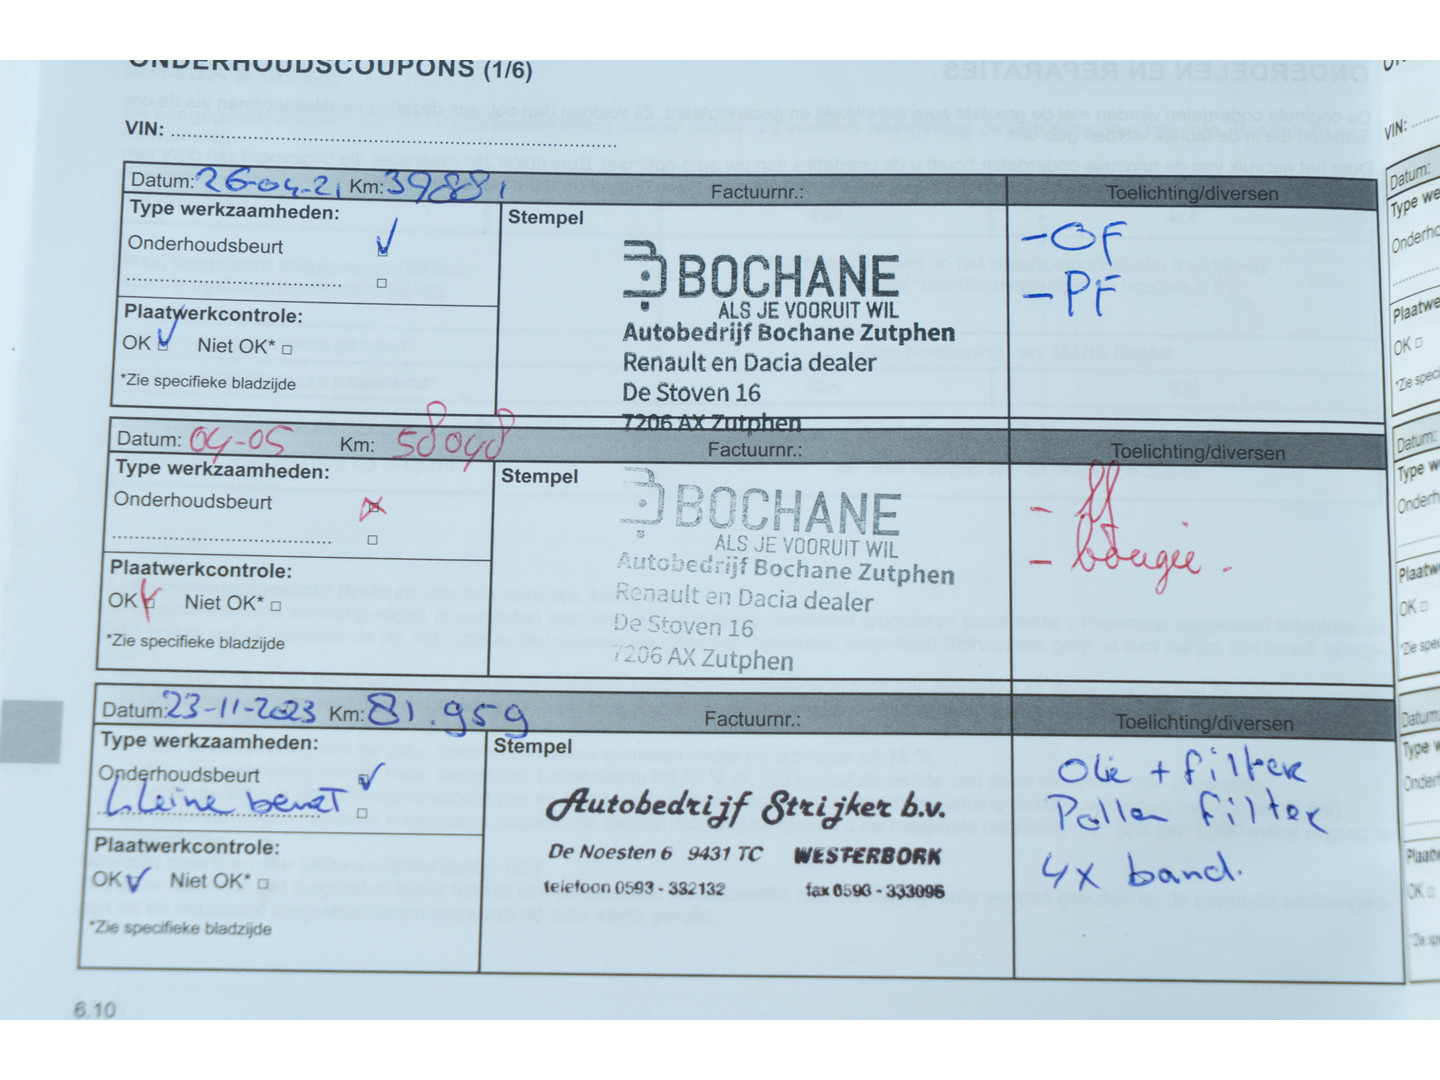 ONDERHOUDSCOUPONS (1/6)
VIN:
Datum: 26-04-21 Km: 39881 Factuurnr.: Toelichting/diversen
Type werkzaamheden:
Stempel
Onderhoudsbeurt
- OF
- PF
BOCHANE
ALS JE VOORUIT WIL
Autobedrijf Bochane Zutphen
Renault en Dacia dealer
De Stoven 16
7206 AX Zutphen
Plaatwerkcontrole:
OK Niet OK*
*Zie specifieke bladzijde
Datum: 04-05 Km: 58048 Factuurnr.: Toelichting/diversen
Type werkzaamheden:
Stempel
Onderhoudsbeurt
- bougie.
BOCHANE
ALS JE VOORUIT WIL
Autobedrijf Bochane Zutphen
Renault en Dacia dealer
De Stoven 16
7206 AX Zutphen
Plaatwerkcontrole:
OK Niet OK*
*Zie specifieke bladzijde
Datum: 23-11-2023 Km: 81.959 Factuurnr.: Toelichting/diversen
Type werkzaamheden:
Stempel
Onderhoudsbeurt
kleine beurt
Olie + filter
Pollen filter
4x band.
Autobedrijf Strijker b.v.
De Noesten 6 9431 TC WESTERBORK
telefoon 0593 - 332132 fax 0593 - 333096
Plaatwerkcontrole:
OK Niet OK*
*Zie specifieke bladzijde
6.10
VIN:
Datum:
OK
Datum:
OK
Datum:
OK